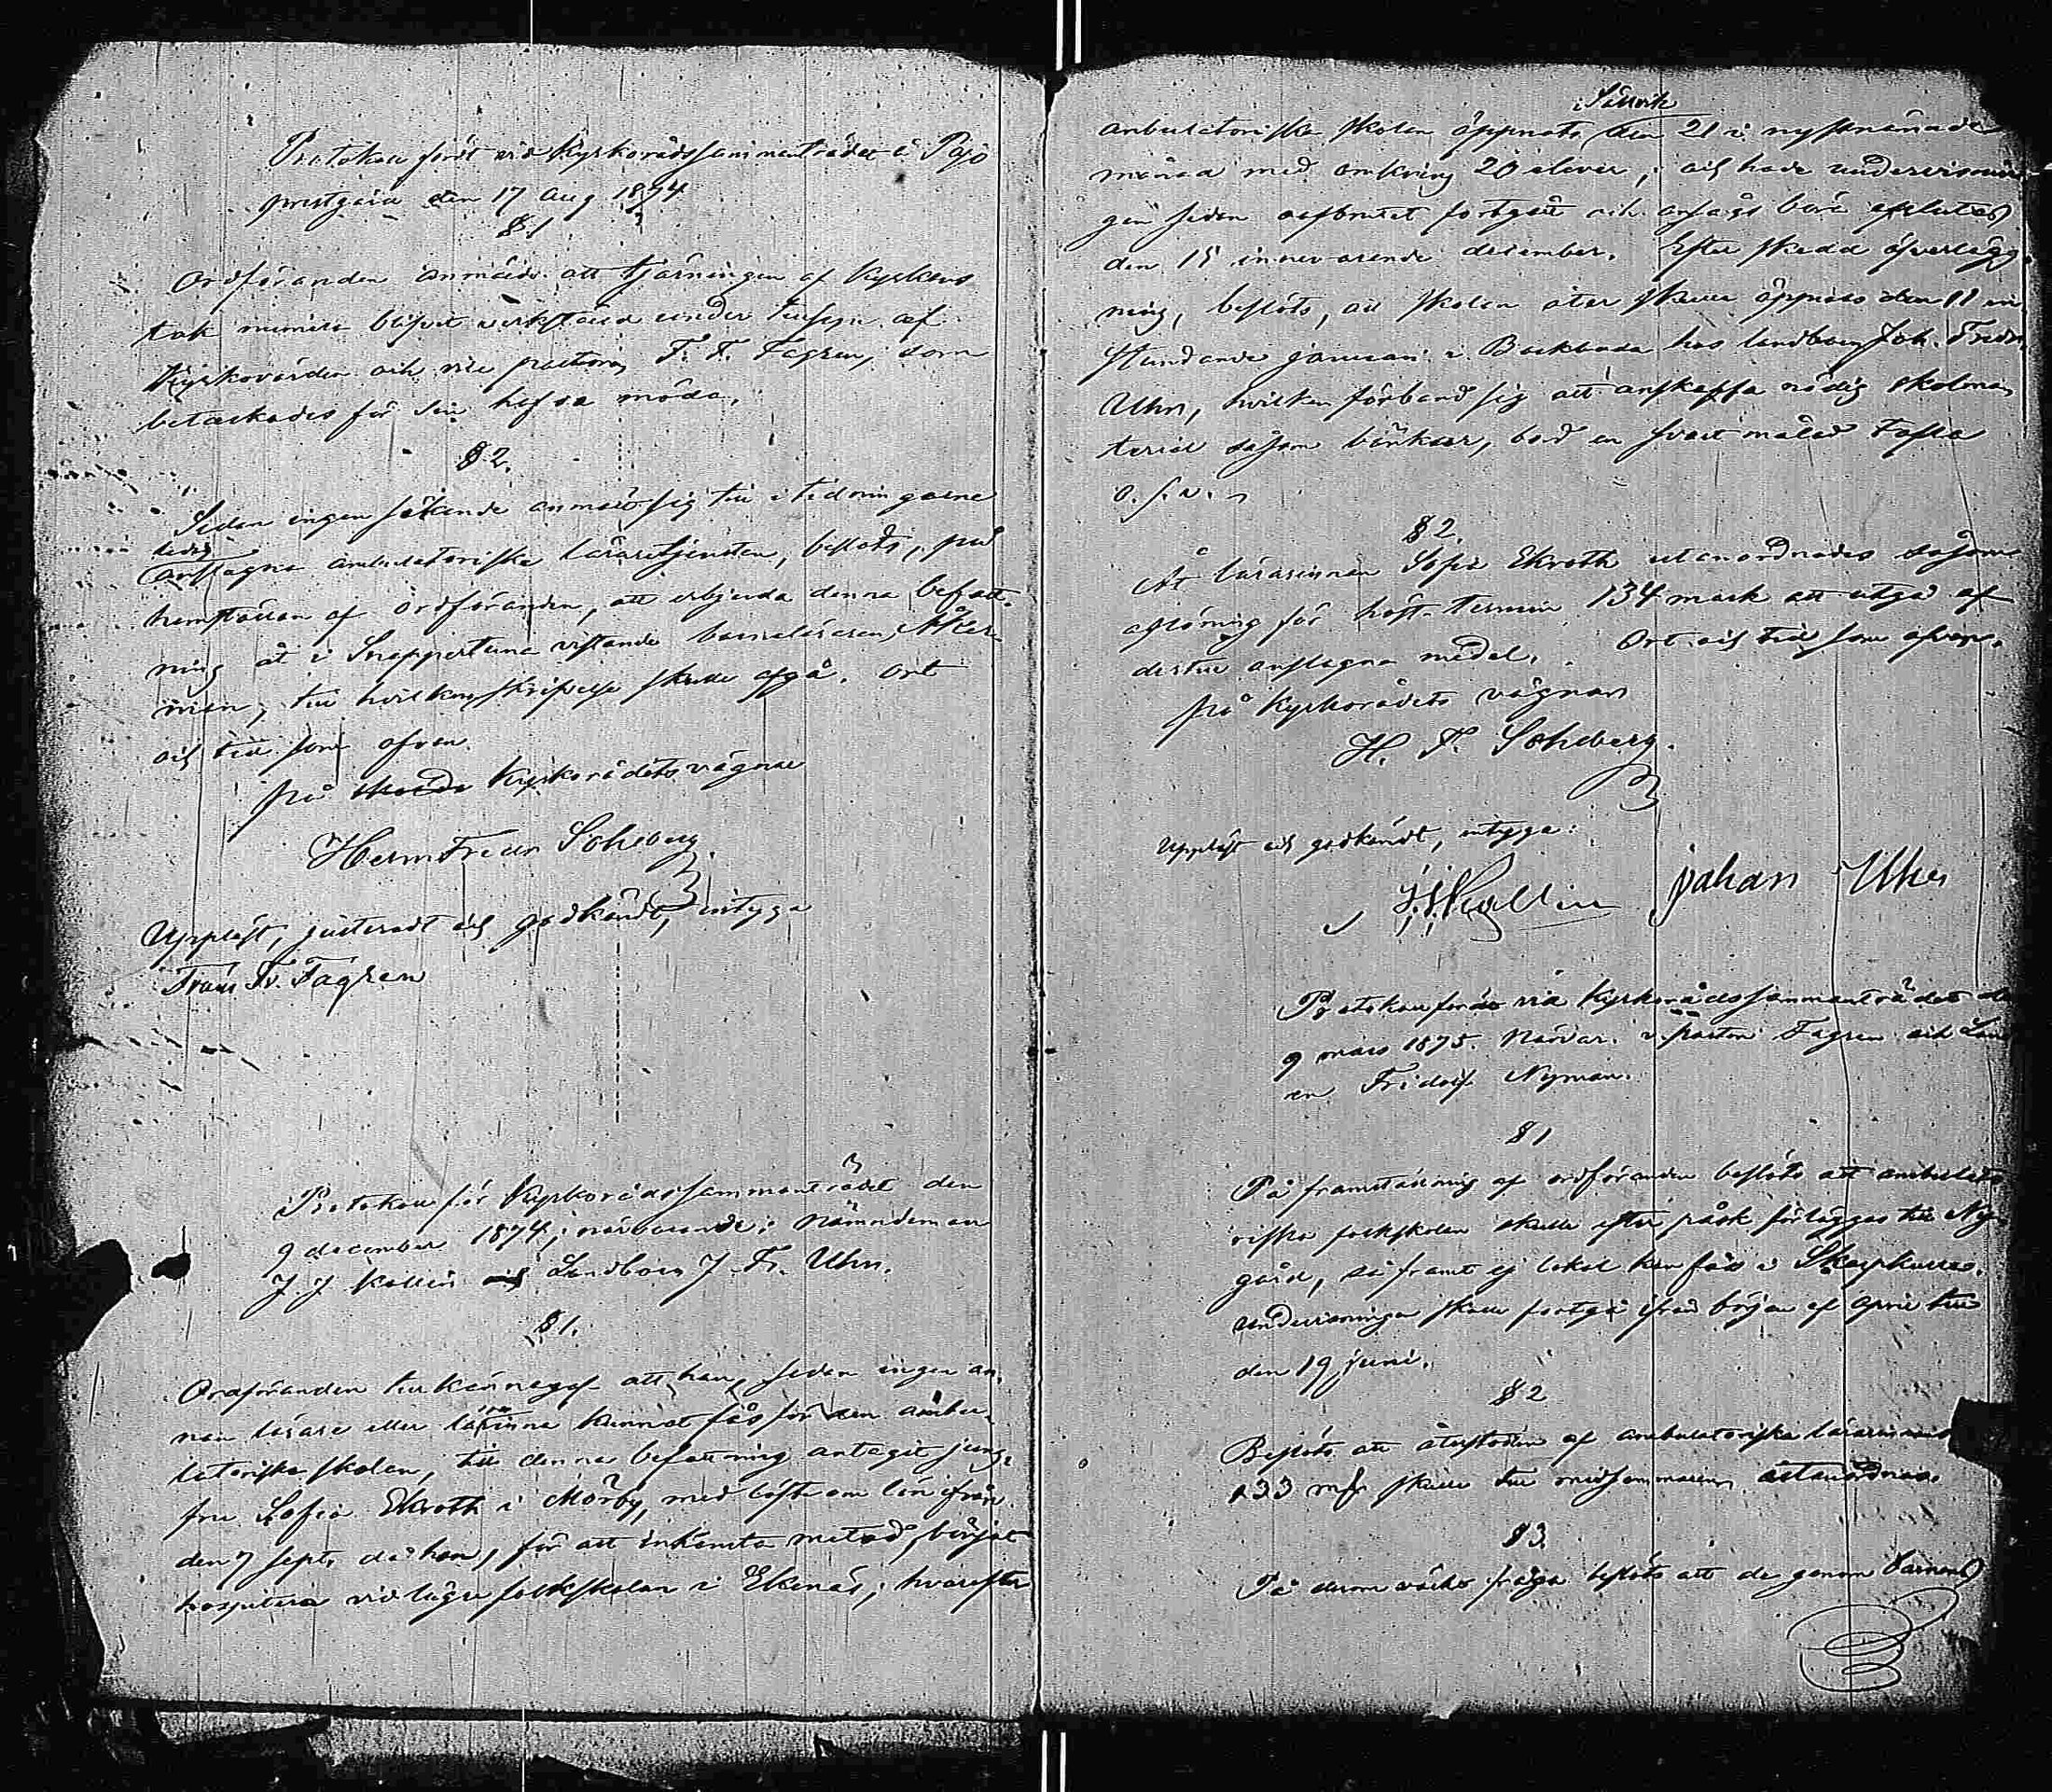 Protokoll fördt vid Kyrkorådssammanträdet i Pojo
prestgård den 17 Aug 1874
§ 1
Ordföranden anmälde att tjärningen af kyrkans
tak numera blifvit verkstäld under tillsyn af
Kyrkovärden och vice pastorn F. F. Fagrén, som
betackades för sin hafda möda.
§ 2.
Sedan ingen sökande anmält sig till i tidningarne
ledig
anslagna ambulatoriska läraretjensten, beslöts, på
hemställan af ordföranden, att erbjuda denna befatt-
ning åt i Snappertuna vistande barnaläraren Åker-
man, till hvilken skrifvelse skulle afgå. Ort
och tid som ofvan.
på Kyrkorådets vägnar
Herm Fredr Sohlberg.
Uppläst, justeradt och godkändt, intyga
Frans Fr. Fagrén
Protokoll för Kyrkorådssammanträdet den
9 december 1874, närvarande: Nämndeman
J. J Kallin och Landbon J. Fr. Uhn.
§ 1.
Ordföranden tillkännagaf att han, sedan ingen an-
nan lärare eller lärarinna kunnat fås för den ambu-
latoriska skolan, till denna befattning antagit jung-
fru Sofia Ekroth i Mörby, med löfte om lön ifrån
den 7 sept. då hon, för att inhämta metod, börjat
hospitera vid lägre folkskolan i Ekenäs; hvarefter
i Sällvik
ambulatoriska skolan öppnats den 21 i nyssnämnde
månad med omkring 20 elever, och hade undervisnin-
gen sedan oafbrutet fortgått och ansågs böra afslutas
den 15 innevarande december. Efter skedd öfverlägg-
ning, beslöts, att skolan åter skulle öppnas den 11 in-
stundande januari i Backbnda hos landbon Joh. Fredr.
Uhn, hvilken förband sig att anskaffa nödig skolma-
teriel såsom bänkar, bord en svart målad tafla
o. s. v.
§ 2.
Åt lärarinnan Sofia Ekroth utanordnades såsom
aflöning för höst-termin 134 mark att utgå af
dertill anslagna medel. Ort och tid som ofvan.
på Kyrkorådets vägnar
H. F. Sohlberg.
Uppläst och godkändt, intyga:
J. J. Kallin Johan Uhn
Protokoll fördt vid Kyrkorådssammanträdet de
9 mars 1875. Närvar. v. pastor Fagrén och Lan
en Fridolf Nyman.
§ 1
På framställning af ordföranden beslöts att ambulato
riska folkskolan skulle efter påsk förläggas till Ny-
gård, såframt ej lokal kan fås i Skarpkulla.
undervisningen skulle fortgå ifrån början af April till
den 19 juni.
§ 2
Beslöts att återstoden af ambulatoriska lärarinnans
133 mk skulle till midsommaren utanordnas.
§ 3.
På derom väckt fråga beslöts att de genom barnens